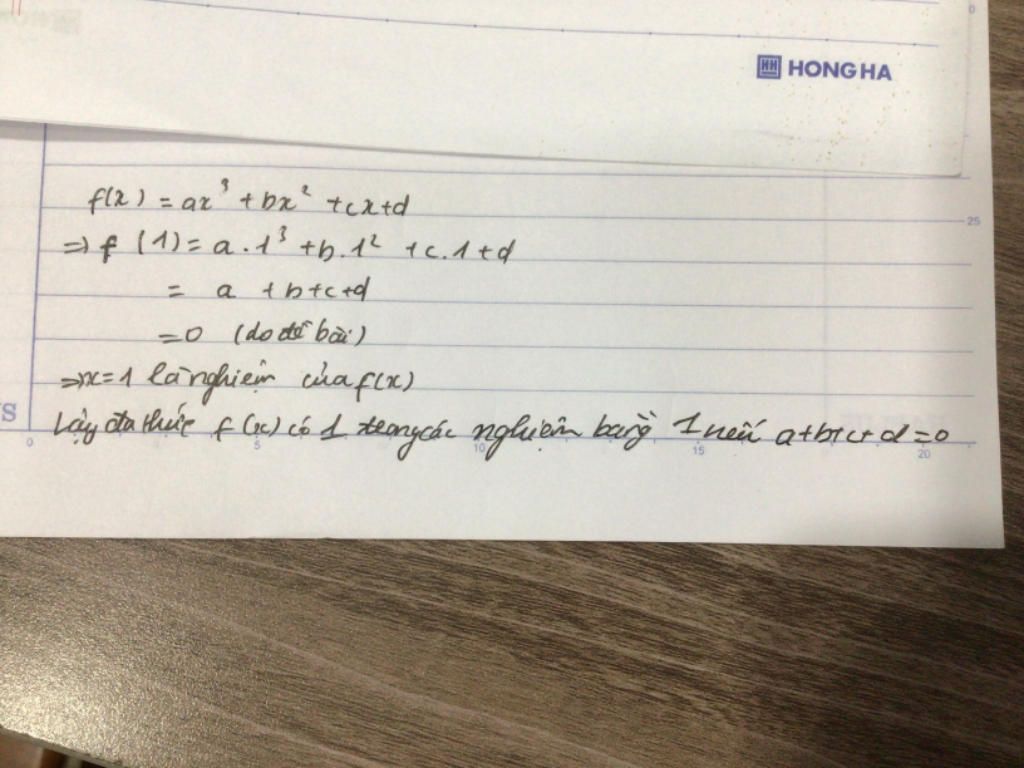 HH HONG HA
25
f(x) = ax³ + bx² + cx+d
⇒ f (1) = a . 1³ + b . 1² + c . 1 + d
= a + b+c+d
=0 (do đề bài)
⇒x=1 là nghiệm của f(x)
Vậy đa thức f(x) có 1 trong các nghiệm bằng 1 nếu a+b+c+d=0
0 5 10 15 20